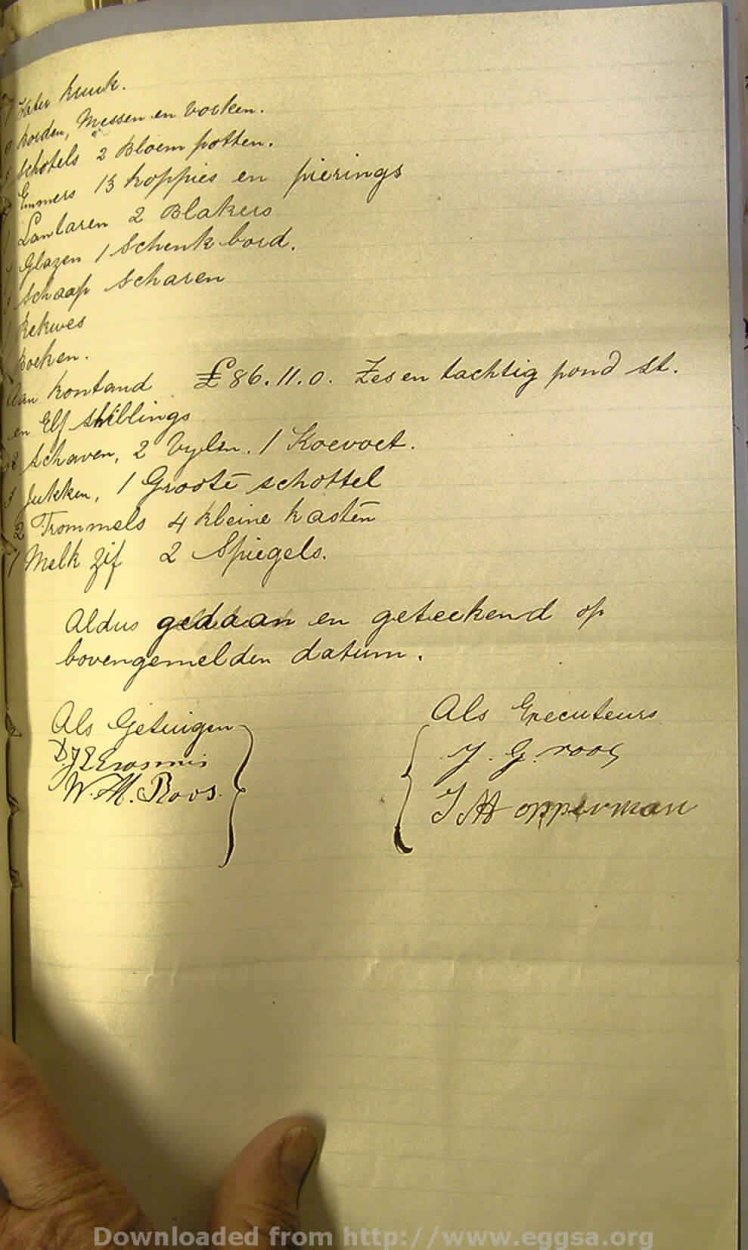 Water kruik.
borden, Messen en vorken.
schotels 2 Bloem potten.
Emmers 13 koppies en pierings
Lantaren 2 Blakers
glazen 1 Schenk bord.
Schaap Scharen
Rekwes
boeken.
Aan kontand £86.11.0. Zes en tachtig pond st.
en Elf shillings
Schaven, 2 Vylen. 1 Koevoet.
Jukken, 1 Groote schottel
2 Trommels 4 kleine kasten
1 Melk zif 2 Spiegels.
Aldus gedaan en geteekend op
bovengemelden datum.
Als Getuigen
Als Executeurs
D J E Erasmis
J. G. roos
W. H. Roos.
opperman
Downloaded from http://www.eggsa.org